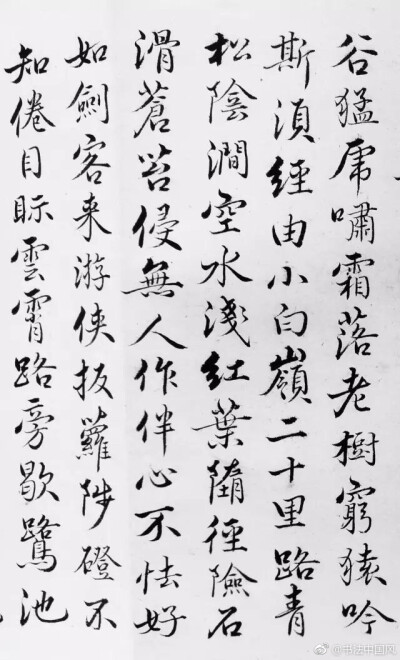 谷猛虎嘯霜落老樹窮猿吟
斯湏經由小白嶺二十里路青
松陰澗空水淺紅葉隋徑險石
滑蒼苔侵無人作伴心不怯好
如劍客来游侠扳蘿陟磴不
知倦目眎雲霄路旁歇鷺池
@书法中国风